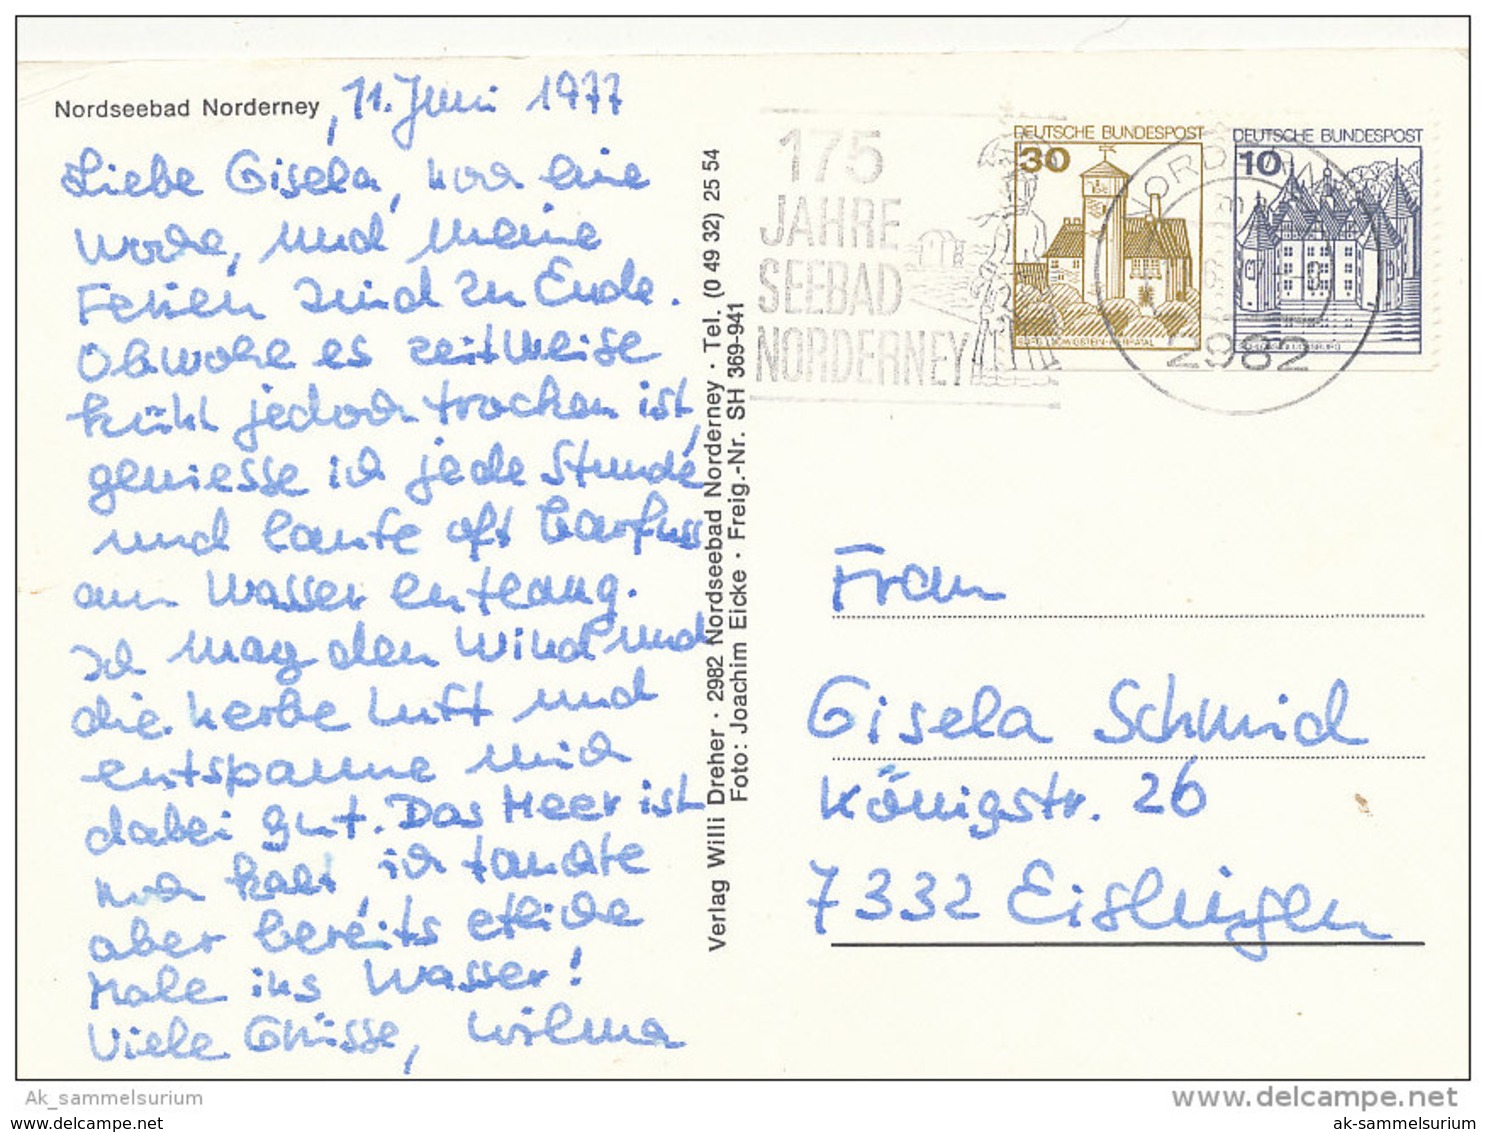 Nordseebad Norderney, 11. Juni 1977
Liebe Gisela, noch eine
Woche, und meine
Ferien sind zu Ende.
Obwohl es zeitweise
kühl jedoch trocken ist,
geniesse ich jede Stunde
und laufe oft barfuss
am Wasser entlang.
Ich mag den Wind und
die herbe Luft und
entspanne mich
dabei gut. Das Meer ist
noch kalt, ich tauchte
aber bereits etliche
Male ins Wasser!
Viele Grüsse, Wilma
Verlag Willi Dreher · 2982 Nordseebad Norderney · Tel. (0 49 32) 25 54
Foto: Joachim Eicke · Freig.-Nr. SH 369-941
175
JAHRE
SEEBAD
NORDERNEY
DEUTSCHE BUNDESPOST
30
DEUTSCHE BUNDESPOST
10
2982
Frau
Gisela Schmid
Königstr. 26
7332 Eislingen
Ak_sammelsurium
www.delcampe.net
www.ak-sammelsurium.com
ak-sammelsurium